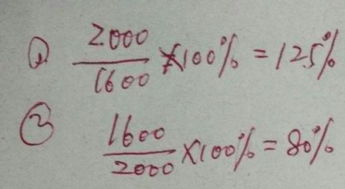 ① 2000/1600 ×100% = 125%
② 1600/2000 ×100% = 80%